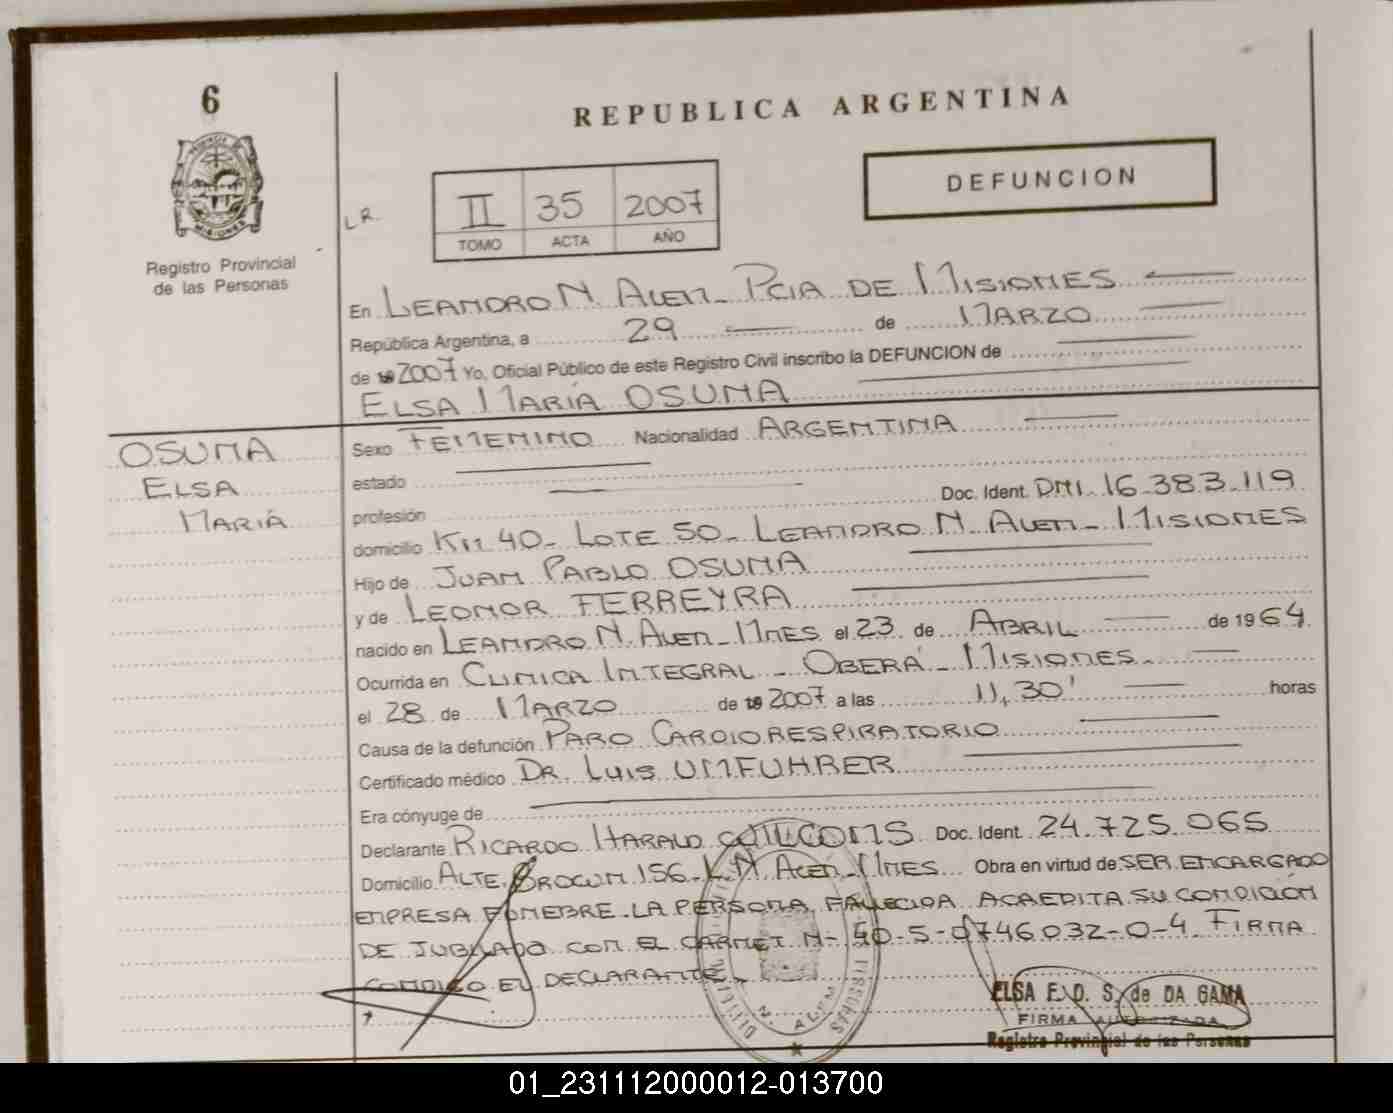 6
REPUBLICA ARGENTINA
PROVINCIA DE
MISIONES
Registro Provincial
de las Personas
LR.
II 35 2007
TOMO ACTA AÑO
DEFUNCION
En LEANDRO N. ALEM - PCIA DE MISIONES
República Argentina, a 29 de MARZO
de 19 2007 Yo, Oficial Público de este Registro Civil inscribo la DEFUNCION de
ELSA MARÍA OSUNA
OSUNA
ELSA
MARIA
Sexo FEMENINO Nacionalidad ARGENTINA
estado
profesión Doc. Ident. DNI. 16.383.119
domicilio KM 40- LOTE 50- LEANDRO N. ALEM- MISIONES
Hijo de JUAN PABLO OSUNA
y de LEONOR FERREYRA
nacido en LEANDRO N. ALEM- MNES el 23 de ABRIL de 1964
Ocurrida en CLINICA INTEGRAL - OBERÁ - MISIONES-
el 28 de MARZO de 19 2007 a las 11,30' horas
Causa de la defunción PARO CARDIORESPIRATORIO
Certificado médico DR. LUIS UMFUHRER
Era cónyuge de
Declarante RICARDO HARALD Doc. Ident. 24.725.065
Domicilio ALTE. BROWN 156- L.N. ALEM- MNES Obra en virtud de SER ENCARGADO
EMPRESA FUNEBRE. LA PERSONA FALLECIDA ACREDITA SU CONDICIÓN
DE JUBILADO CON EL CARNET N- 40-5-0746032-0-4 FIRMA
CONMIGO EL DECLARANTE-
N. ALEM
MISIONES
ELSA F. D. S. de DA GAMA
FIRMA AUTORIZADA
Registro Provincial de las Personas
01_231112000012-013700